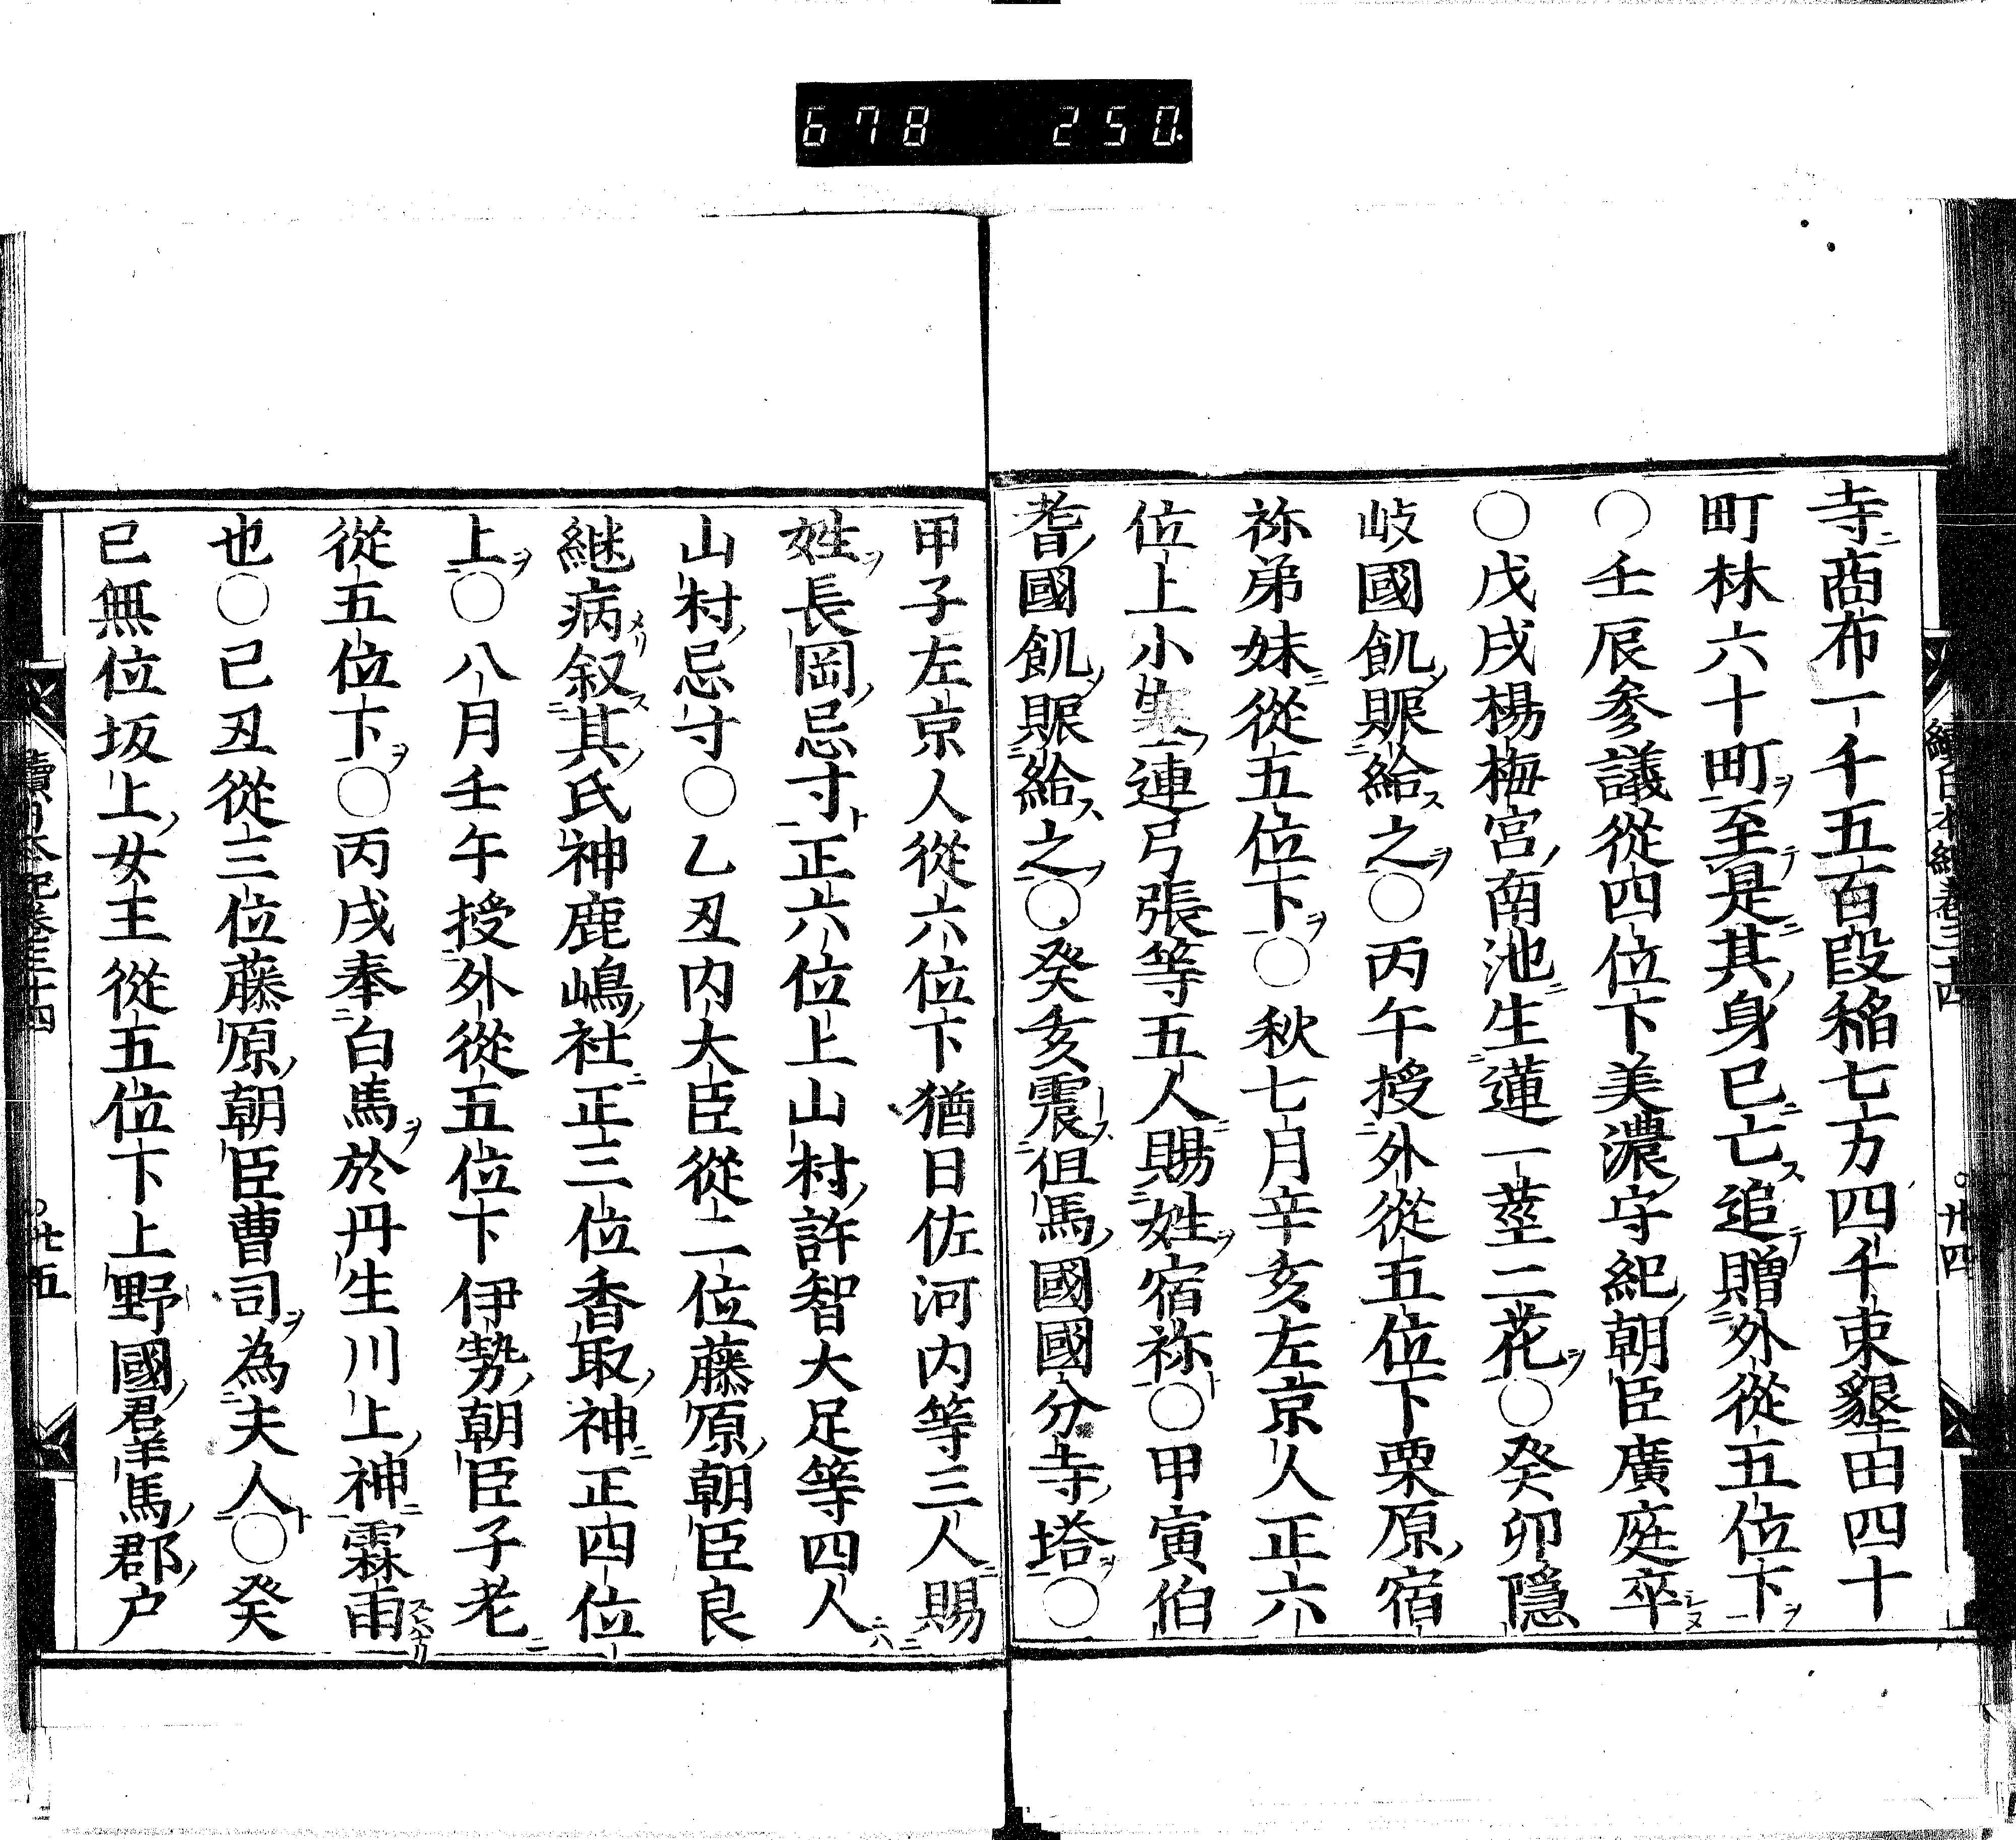 678 250.
續日本紀卷三十四
廿四
寺商布一千五百段稲七万四千束墾田四十
町林六十町至是其身已亡追贈外從五位下
○壬辰參議從四位下美濃守紀朝臣廣庭卒
○戊戌楊梅宮南池生蓮一莖二花○癸卯隱
岐國飢賑給之○丙午授外從五位下栗原宿
祢弟妹從五位下○秋七月辛亥左京人正六
位上小塞連弓張等五人賜姓宿祢○甲寅伯
耆國飢賑給之○癸亥震伹馬國國分寺塔○
甲子左京人從六位下猶日佐河内等三人賜
姓長岡忌寸正六位上山村許智大足等四人
山村忌寸○乙丑内大臣從二位藤原朝臣良
継病叙其氏神鹿嶋社正三位香取神正四位
上○八月壬午授外從五位下伊勢朝臣子老
從五位下○丙戌奉白馬於丹生川上神霖雨
也○己丑從三位藤原朝臣曹司為夫人○癸
巳無位坂上女王從五位下上野國羣馬郡户
續日本紀卷三十四
廿五